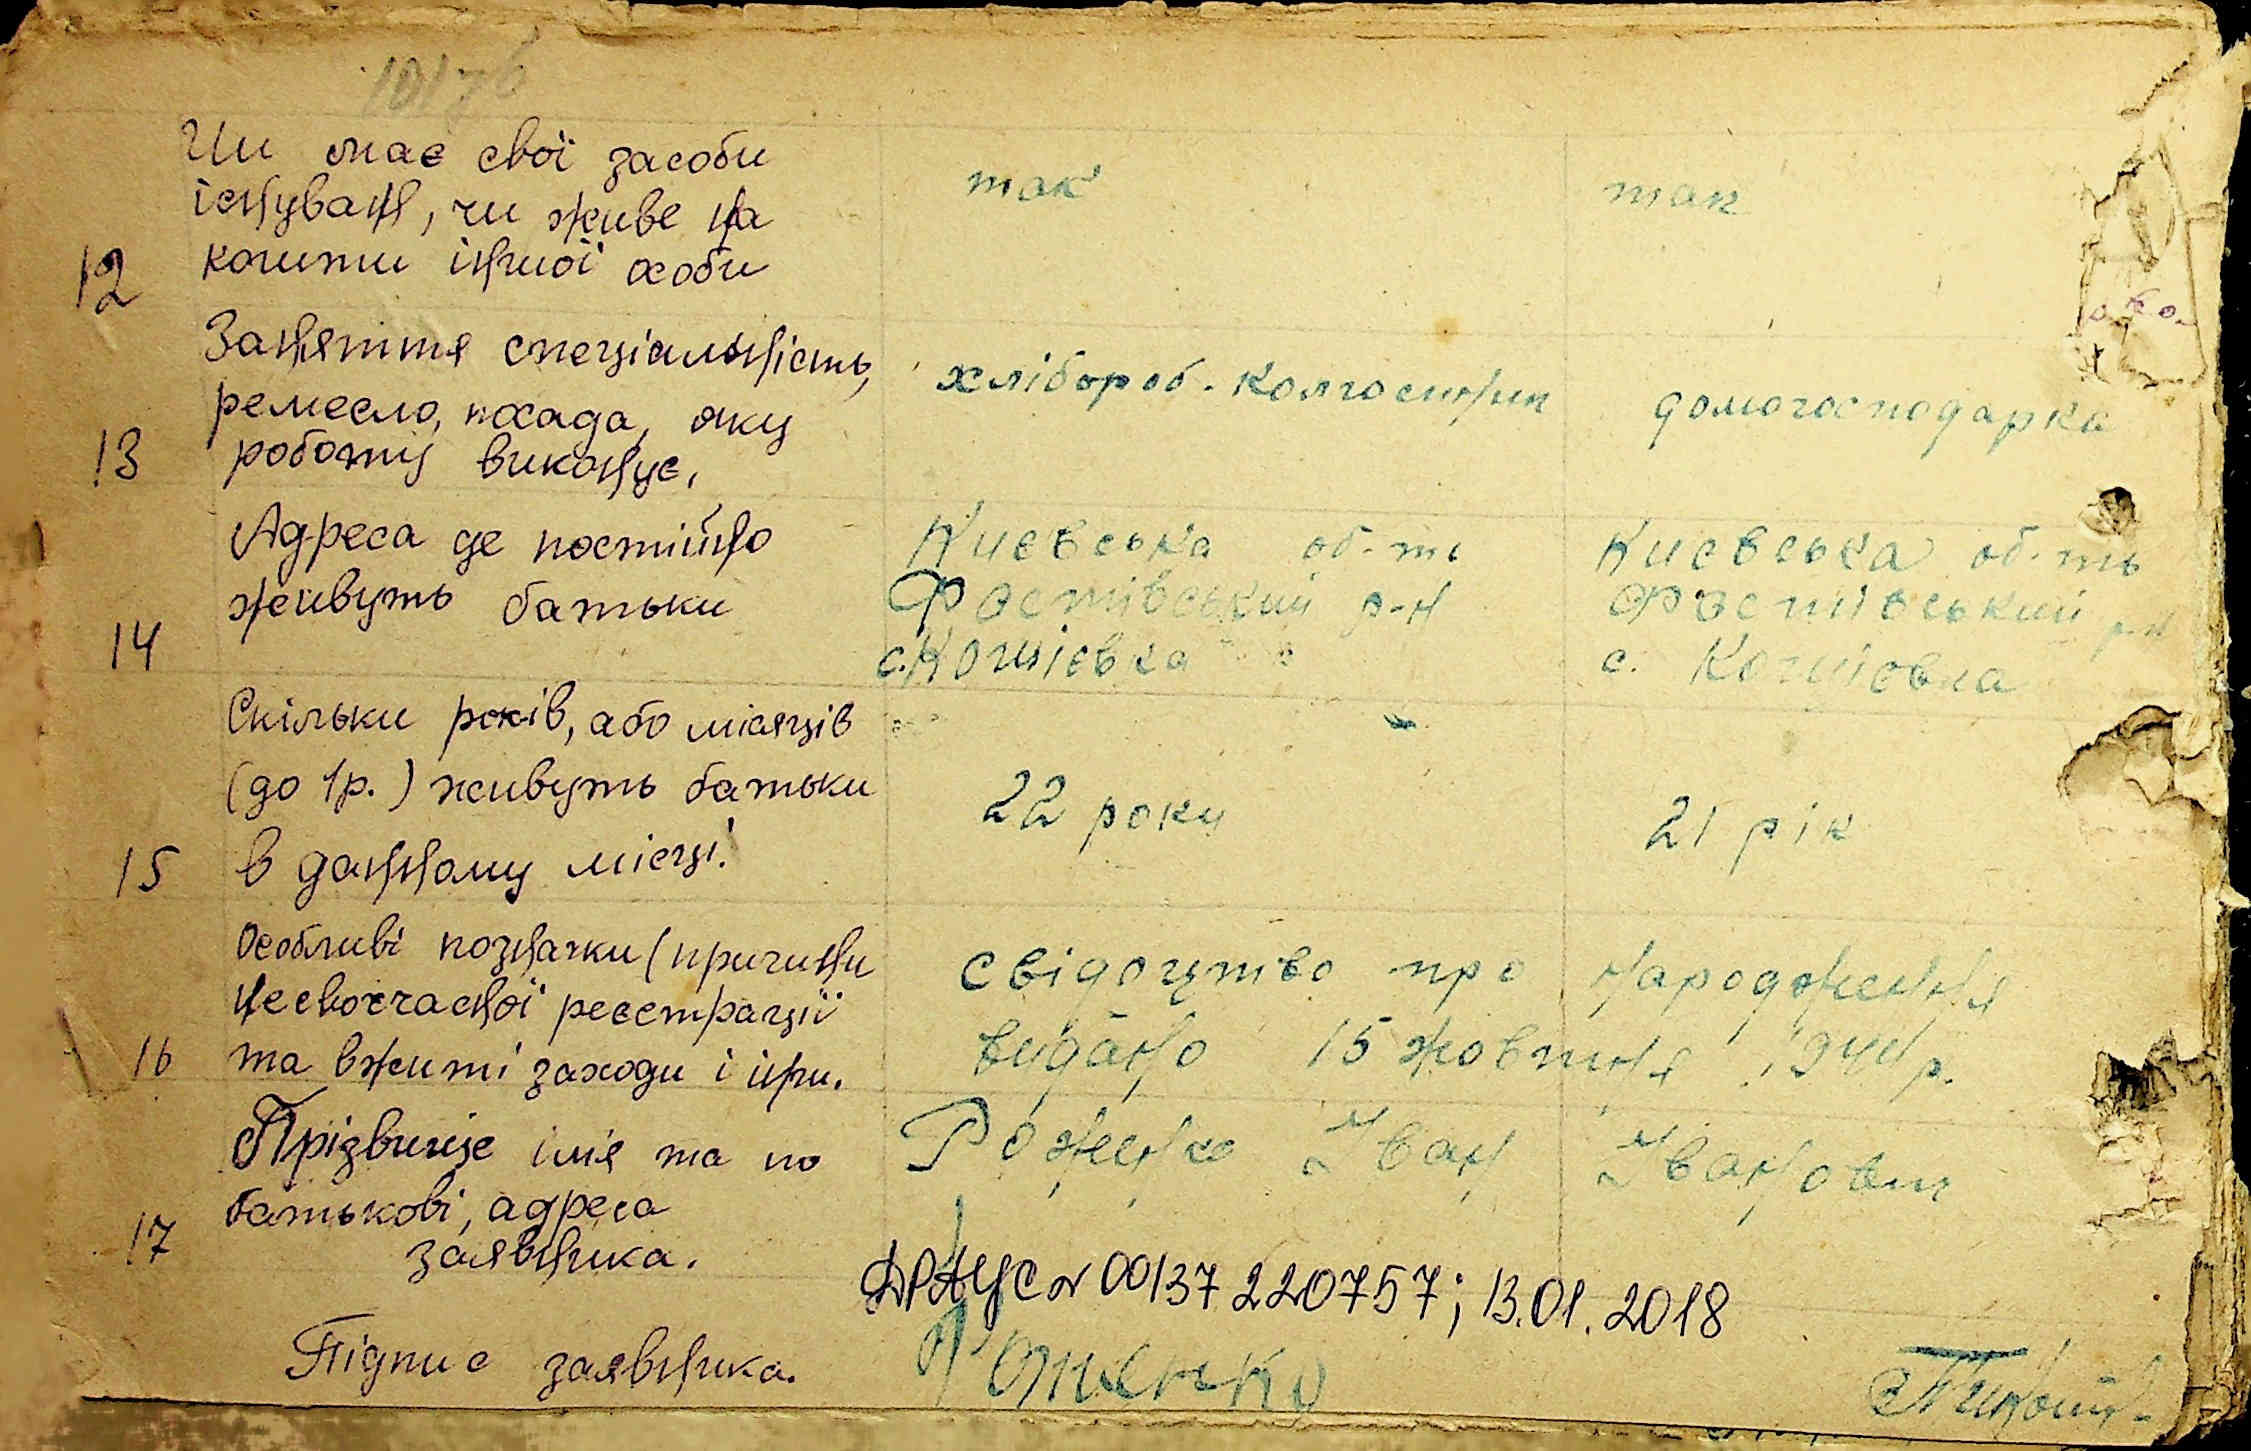 Чи має свої засоби
існуванн, чи живе на
12 кошти іншої особи
так
так
Заняття спеціальність,
ремесло, посада, яку
13 роботу виконує.
хлібороб-колгоспник
домогосподарка
Адреса де постійно
живуть батьки
14
Києвська об-ть
Фастівський р-н
с. Кошієвка
Києвська об-ть
Фастівський р-н
с. Кошієвка
Скільки років, або місяців
(до 1р.) живуть батьки
15 в данному місці.
22 року
21 рік
Особливі позначки (причини
несвоєчасної реєстрації
16 та вжиті заходи і інш.
свідоцтво про народження
видано 15 жовтня 1944р.
Прізвище імя та по
батькові, адреса
17 заявника.
Роженко Іван Іванович
ДРАЦС № 00137220757; 13.01.2018
Підпис заявника.
Роженко